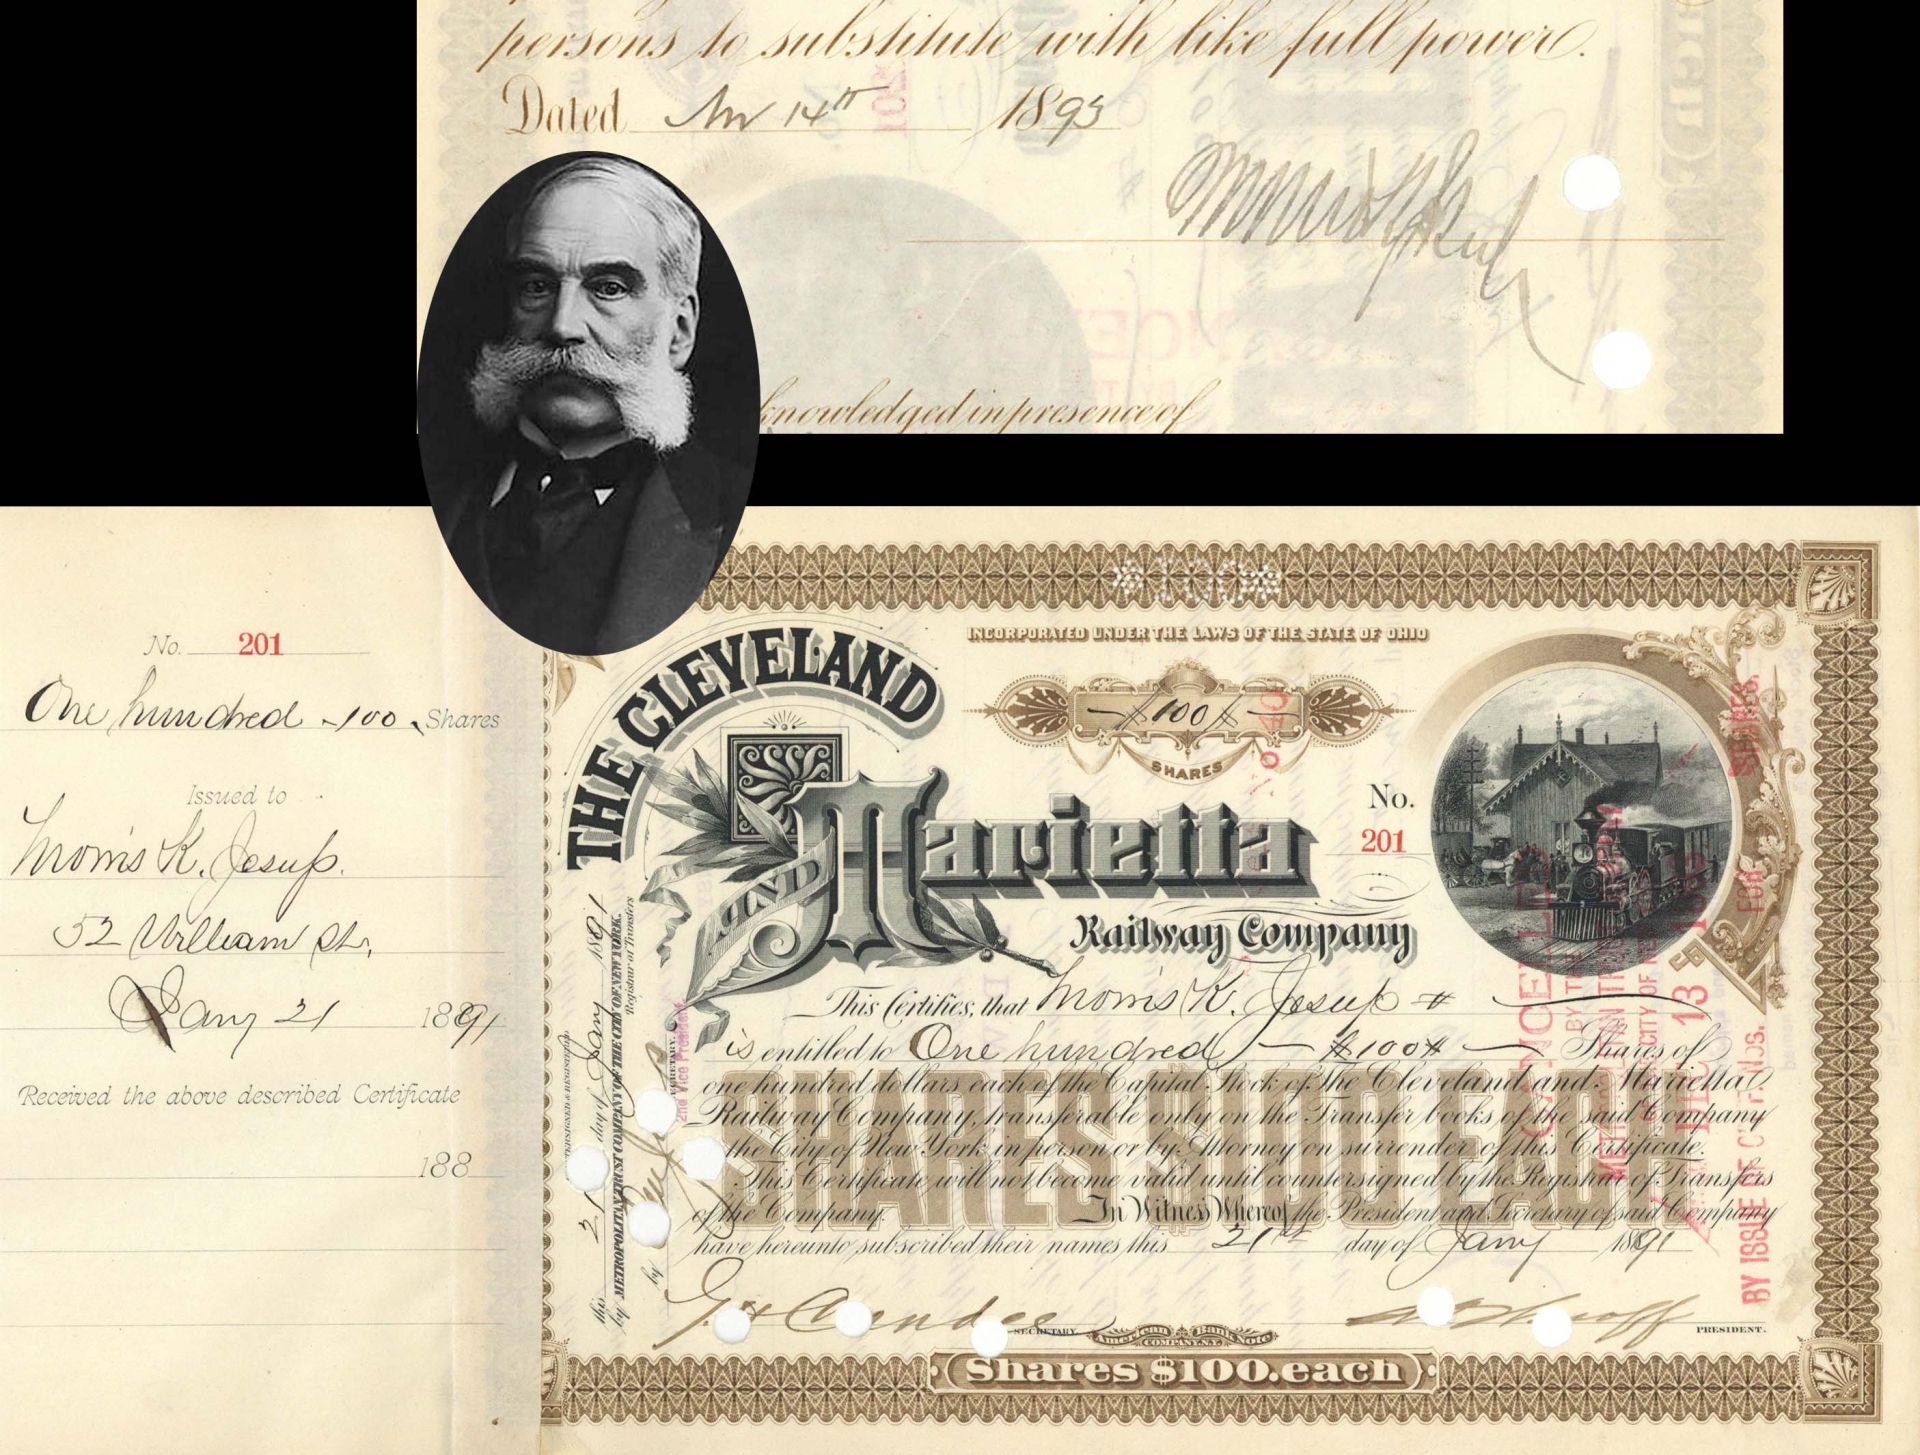 persons to substitute with like full power.
Dated Nov 14th 1895
Morris K Jesup
knowledged in presence of
No. 201
One hundred - 100 Shares
Issued to
Morris K. Jesup.
52 William St,
Jany 21 1891
Received the above described Certificate
188
100
INCORPORATED UNDER THE LAWS OF THE STATE OF OHIO
THE CLEVELAND
AND Marietta
Railway Company
100
SHARES
No.
201
This Certifies, that Morris K. Jesup
is entitled to One hundred 100 Shares of
one hundred dollars each of the Capital Stock of The Cleveland and Marietta
Railway Company, transferable only on the Transfer books of the said Company
in the City of New York in person or by Attorney on surrender of this Certificate.
This Certificate will not become valid until countersigned by the Registrar of Transfers
of the Company. In Witness Whereof the President and Secretary of said Company
have hereunto subscribed their names this 21st day of Jany 1891
SHARES $100 EACH
COUNTERSIGNED & REGISTERED
this 21 day of Jany 1891
by METROPOLITAN TRUST COMPANY OF THE CITY OF NEW YORK.
Registrar of Transfers
by
SECRETARY.
2nd Vice President
CANCELLED
BY THE
METROPOLITAN TRUST COMPANY
CITY OF NEW
13
BY ISSUE OF
FOR
SHARES.
G H Candee
SECRETARY.
PRESIDENT.
American Bank Note
COMPANY N.Y.
Shares $100. each